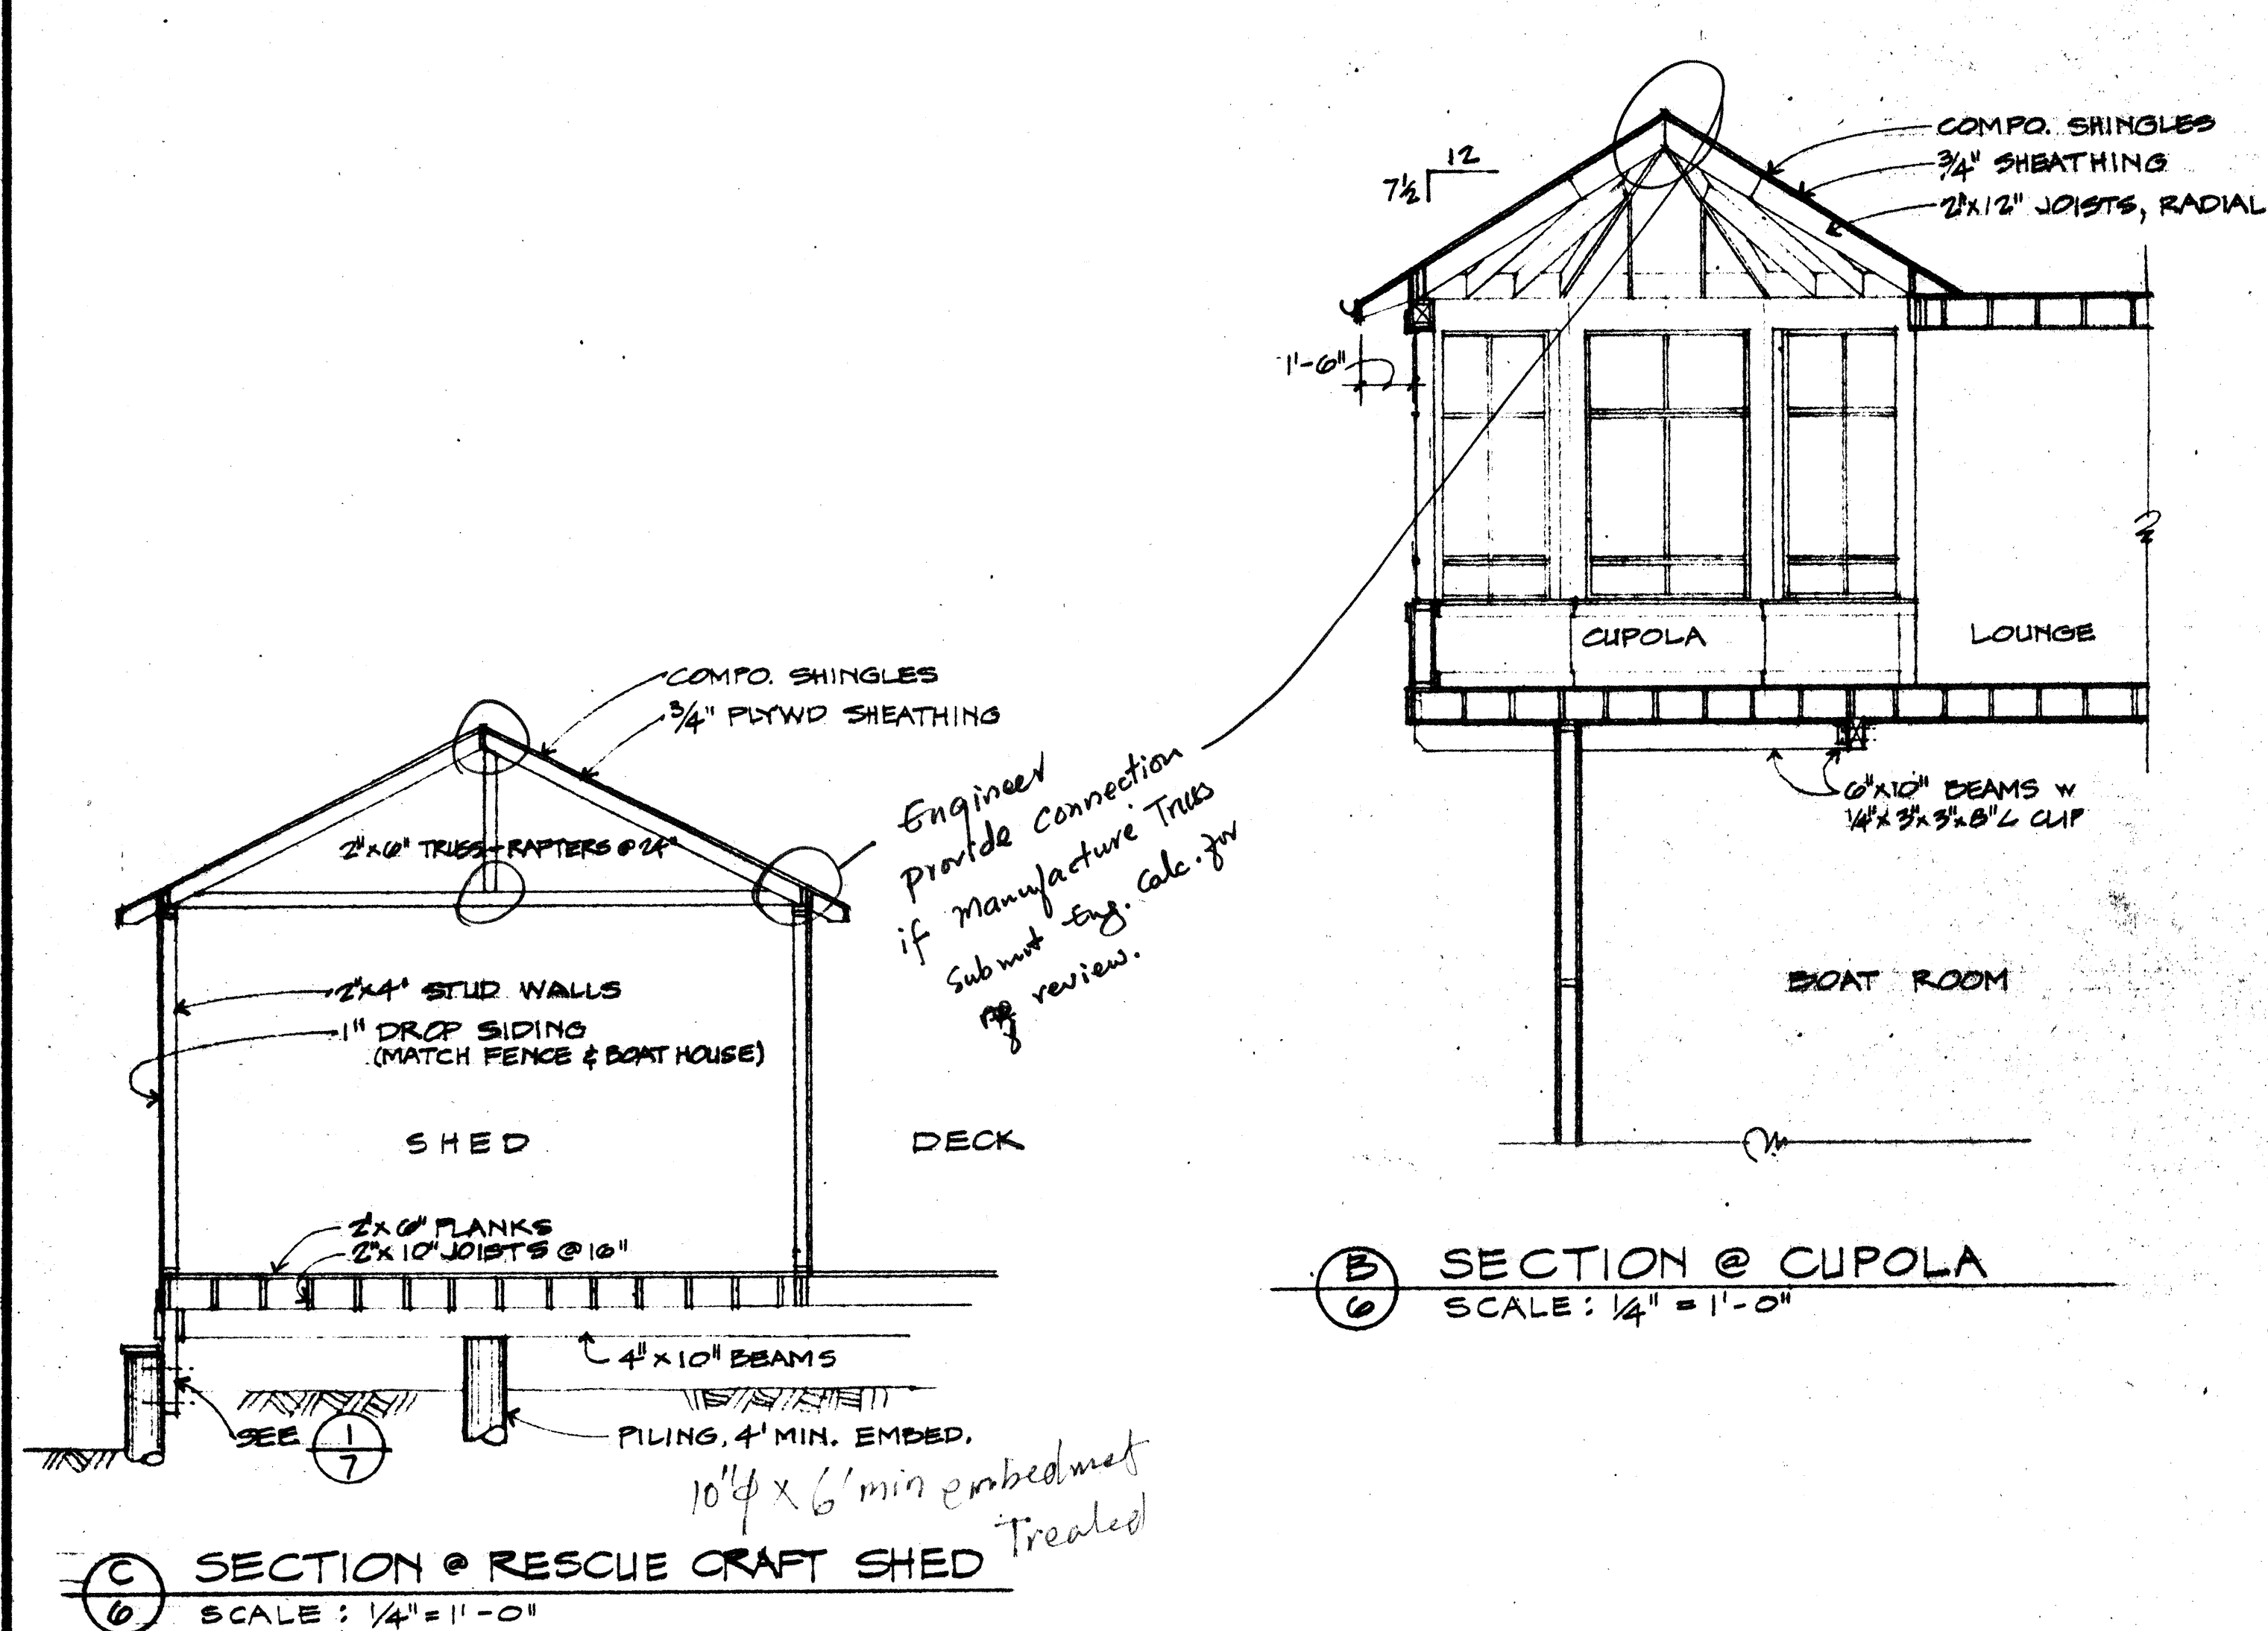 COMPO. SHINGLES
3/4" SHEATHING
2"X12" JOISTS, RADIAL
12
7½
1'-6"
CUPOLA
LOUNGE
6"X10" BEAMS W
1/4"X3"X3"X8"L CLIP
BOAT ROOM
B
6
SECTION @ CUPOLA
SCALE: 1/4" = 1'-0"
COMPO. SHINGLES
3/4" PLYWD SHEATHING
2"X6" TRUSS-RAFTERS @ 24"
Engineer
provide connection
if Manufacture Truss
Submit Eng. Calc. for
review.
2"X4" STUD WALLS
1" DROP SIDING
(MATCH FENCE & BOAT HOUSE)
SHED
DECK
2"X6" PLANKS
2"X10" JOISTS @ 16"
4"X10" BEAMS
SEE
1
7
PILING, 4' MIN. EMBED.
10"φ X 6' min embedmet
Treated
C
6
SECTION @ RESCUE CRAFT SHED
SCALE: 1/4"=1'-0"